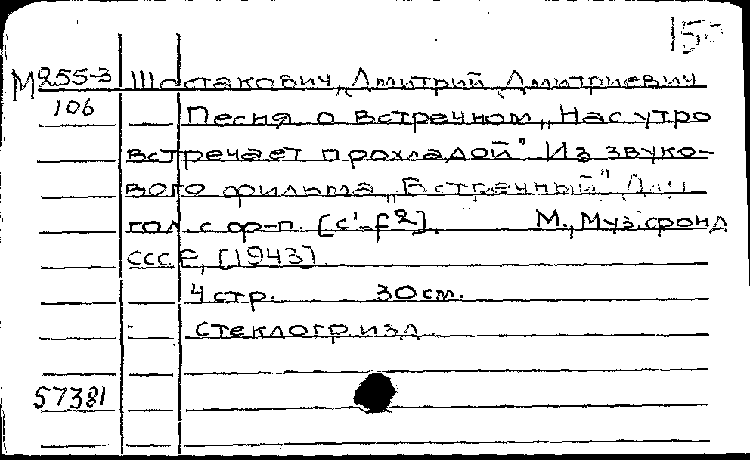 М 255-3 Шостакович, Дмитрий Дмитриевич
106 Песня о встречном „Нас утро
встречает прохладой" Из звуко-
вого фильма „Встречный" Для
гол. с ф-п. [c'-f²]. М., Музфонд
СССР, [1943].
4 стр. 30 см.
стеклогр. изд.
57381